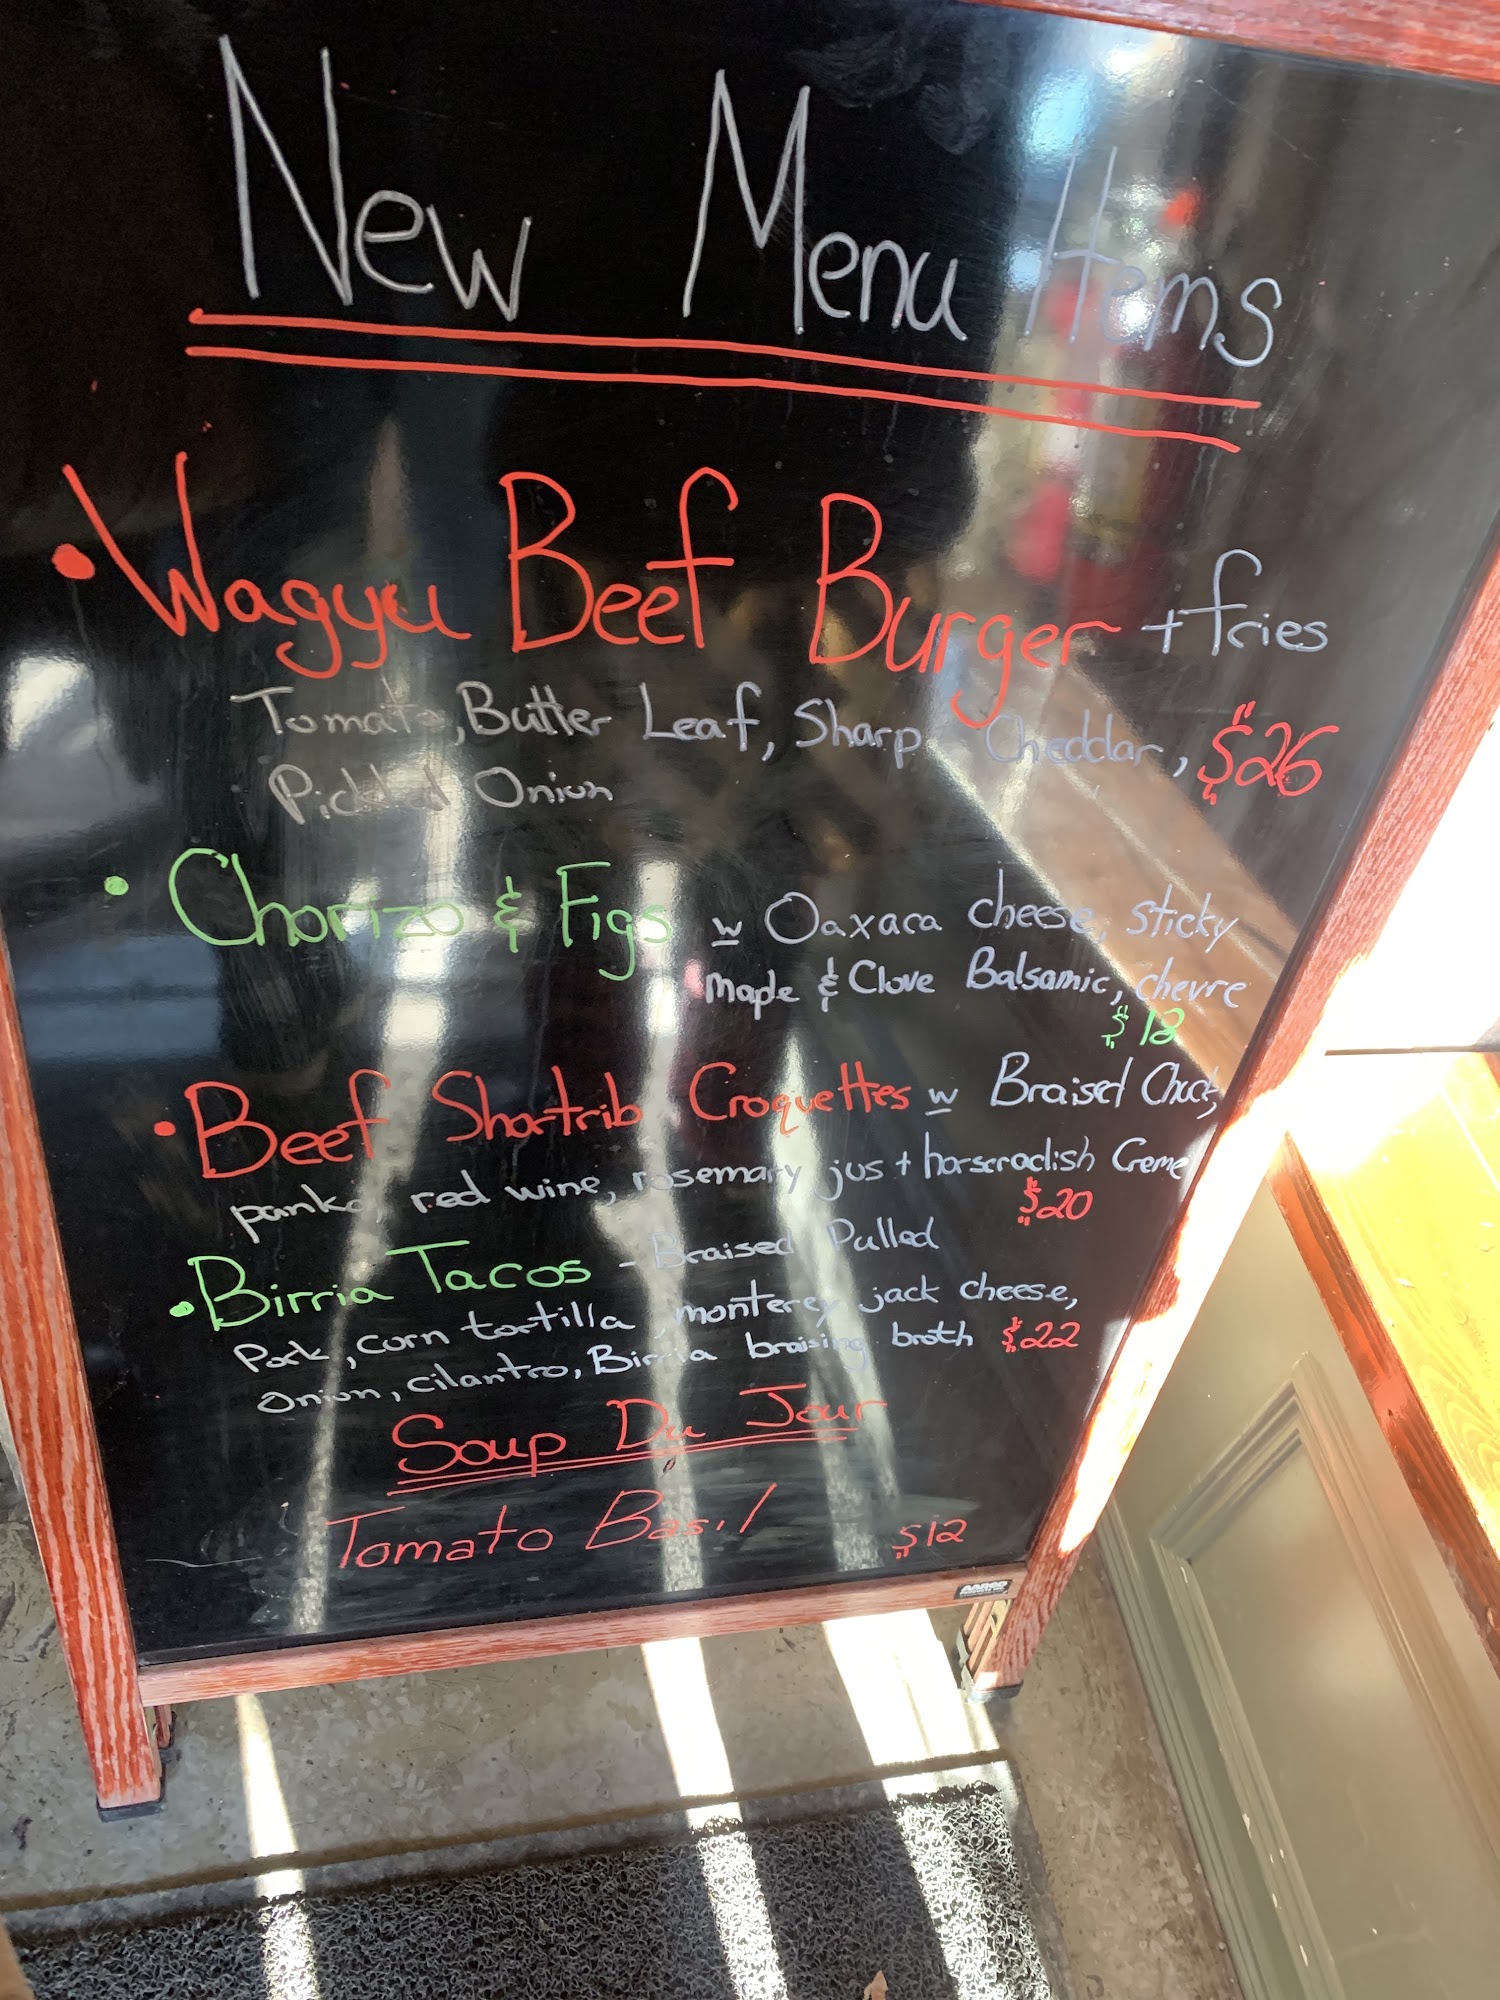 New Menu Items
• Wagyu Beef Burger + fries
Tomato, Butter Leaf, Sharp Cheddar, $26
Pickled Onion
• Chorizo & Figs w Oaxaca cheese, sticky
Maple & Clove Balsamic, chevre
• Beef Shortrib Croquettes w Braised Chuck,
panko, red wine, rosemary jus + horseradish Creme
$20
• Birria Tacos - Braised Pulled
Pork, corn tortilla, monterey jack cheese,
Onion, cilantro, Birria braising broth $22
Soup Du Jour
Tomato Basil
$12